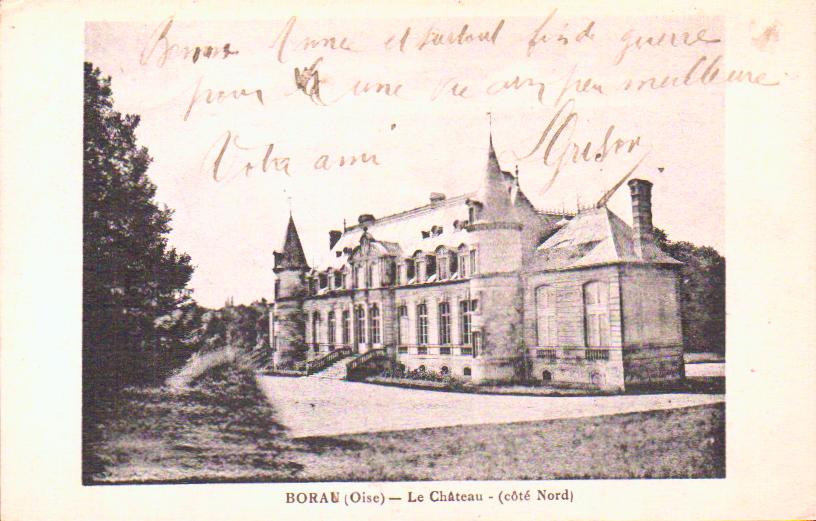 Bonne Anne et surtout fin de guerre
pour une vie un peu meilleure
Votre ami
BORAU (Oise) — Le Château - (côté Nord)